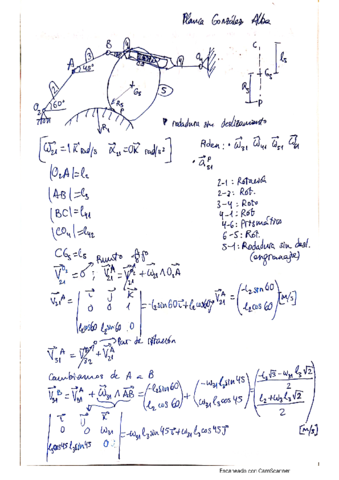 Blanca González Alba
B
3
A
45°
2
O₂
60°
G₅
5
P
C
G₅
R₅
l₅
P
rodadura sin deslizamiento
[ω₂₁ = 1 k rad/s   α₂₁ = 0 k rad/s²]
|O₂A| = l₂
|AB| = l₃
|BC| = l₄₁
|CO₄| = l₄₂
CG₅ = l₅
2-1: Rotación
2-3: Rot.
3-4: Roto
4-1: Rot
4-6: Prismático
6-5: Rot.
5-1: Rodadura sin desl.
(engranaje)
V₂₁^A = V₂₁^O₂ + ω₂₁ ∧ O₂A
V₂₁^A = | i j k |
0 0 1
l₂cos60 l₂sin60 0
= -l₂ sin60 i + l₂ cos60 j
V₂₁^A = (-l₂ sin60
l₂ cos60) [m/s]
Par de rotación
Cambiamos de A a B
V₃₁^B = V₃₁^A + ω₃₁ ∧ AB = (-l₂ sin60
l₂ cos60) + (-ω₃₁ l₃ sin45
ω₃₁ l₃ cos45) = (-l₂√3 - ω₃₁ l₃√2
2
l₂ + ω₃₁ l₃√2
2)
[m/s]
| i j k |
0 0 ω₃₁
l₃cos45 l₃sin45 0
= -ω₃₁ l₃ sin45 i + ω₃₁ l₃ cos45 j
Escaneado con CamScanner